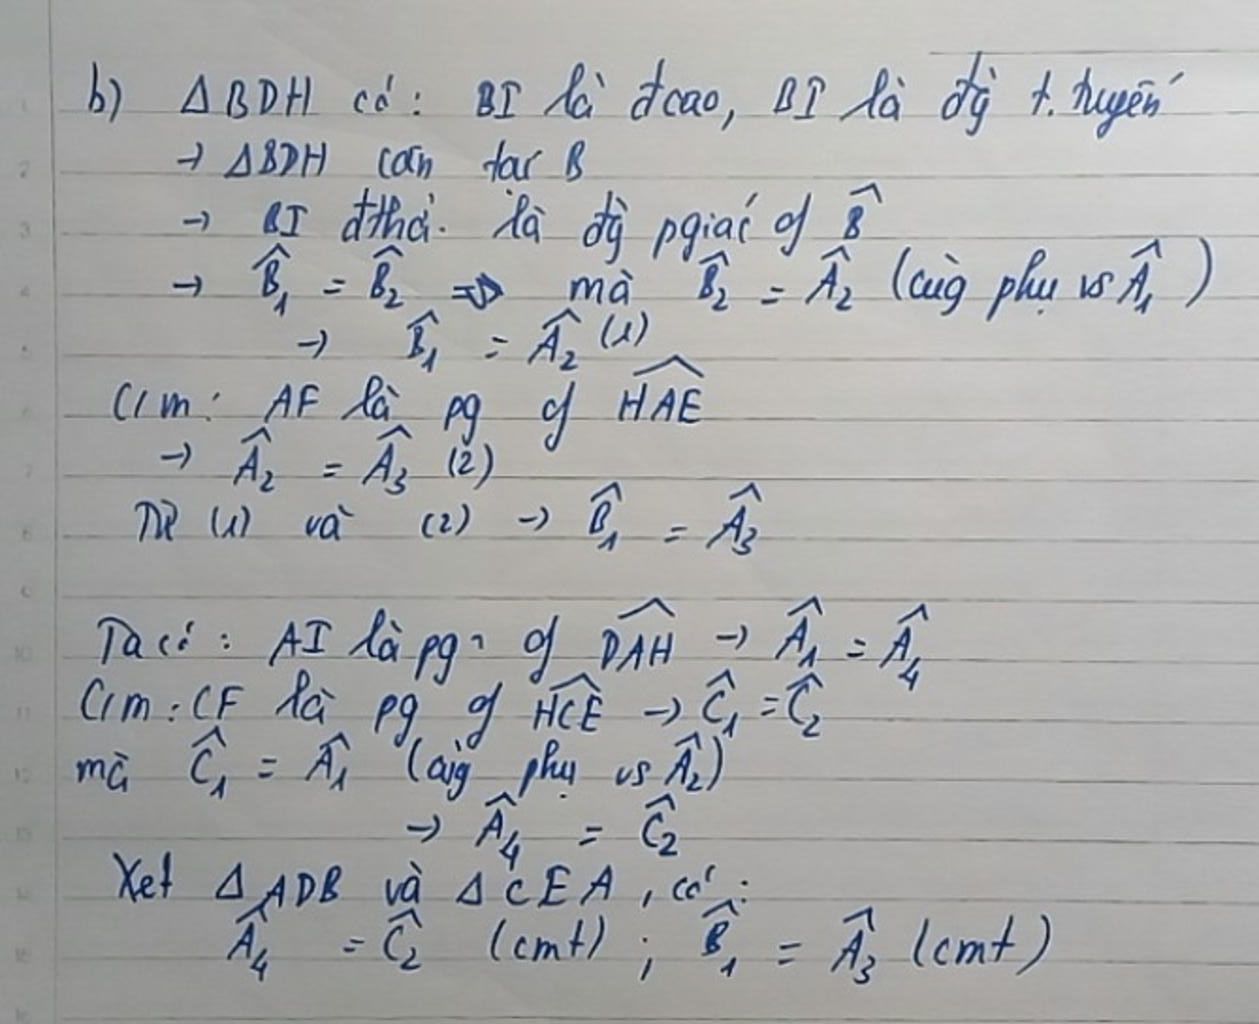 b) ΔBDH có: BI là đcao, BI là đg̀ t. tuyến
→ ΔBDH cân tại B
→ BI đthờ. là đg̀ pgiác of B̂
→ B̂₁ = B̂₂ mà B̂₂ = Â₂ (cùg phụ vs Â₁)
→ B̂₁ = Â₂ (1)
C/m: AF là pg of HAE^
→ Â₂ = Â₃ (2)
Từ (1) và (2) → B̂₁ = Â₃
Ta có: AI là pg of DAH^ → Â₁ = Â₄
C/m: CF là pg of HCE^ → Ĉ₁ = Ĉ₂
mà Ĉ₁ = Â₁ (cùg phụ vs Â₂)
→ Â₄ = Ĉ₂
Xét ΔADB và ΔCEA, có:
Â₄ = Ĉ₂ (cmt); B̂₁ = Â₃ (cmt)